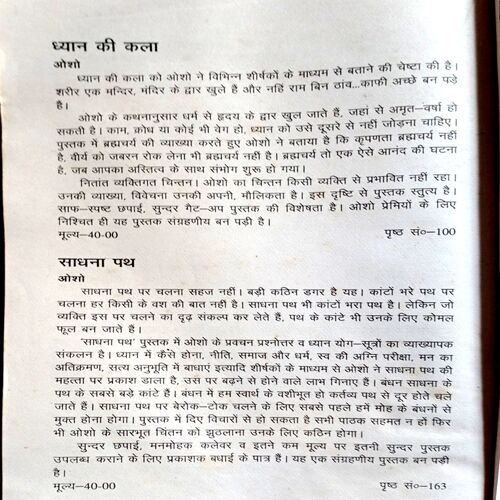 ध्यान की कला
ओशो
ध्यान की कला को ओशो ने विभिन्न शीर्षकों के माध्यम से बताने की चेष्टा की है।
शरीर एक मन्दिर, मंदिर के द्वार खुले हैं और नहिं राम बिन ठांव...काफी अच्छे बन पड़े
है।
ओशो के कथनानुसार धर्म से हृदय के द्वार खुल जाते हैं, जहां से अमृत–वर्षा हो
सकती है। काम, क्रोध या कोई भी वेग हो, ध्यान को उसे दूसरे से नहीं जोड़ना चाहिए।
पुस्तक में ब्रह्मचर्य की व्याख्या करते हुए ओशो ने बताया है कि कृपणता ब्रह्मचर्य नहीं
है, वीर्य को जबरन रोक लेना भी ब्रह्मचर्य नहीं है। ब्रह्मचर्य तो एक ऐसे आनंद की घटना
है, जब आपका अस्तित्व के साथ संभोग शुरू हो गया।
नितांत व्यक्तिगत चिन्तन। ओशो का चिन्तन किसी व्यक्ति से प्रभावित नहीं रहा।
उनकी व्याख्या, विवेचना उनकी अपनी, मौलिकता है। इस दृष्टि से पुस्तक स्तुत्य है।
साफ–स्पष्ट छपाई, सुन्दर गैट–अप पुस्तक की विशेषता है। ओशो प्रेमियों के लिए
निश्चित ही यह पुस्तक संग्रहणीय बन पड़ी है।
मूल्य–40-00 पृष्ठ सं०–100
साधना पथ
ओशो
साधना पथ पर चलना सहज नहीं। बड़ी कठिन डगर है यह। कांटों भरे पथ पर
चलना हर किसी के वश की बात नहीं है। साधना पथ भी कांटों भरा पथ है। लेकिन जो
व्यक्ति इस पर चलने का दृढ़ संकल्प कर लेते हैं, पथ के कांटे भी उनके लिए कोमल
फूल बन जाते हैं।
'साधना पथ' पुस्तक में ओशो के प्रवचन प्रश्नोत्तर व ध्यान योग–सूत्रों का व्याख्यापक
संकलन है। ध्यान में कैसे होना, नीति, समाज और धर्म, स्व की अग्नि परीक्षा, मन का
अतिक्रमण, सत्य अनुभूति में बाधाएं इत्यादि शीर्षकों के माध्यम से ओशो ने साधना पथ की
महत्ता पर प्रकाश डाला है, उस पर बढ़ने से होने वाले लाभ गिनाए हैं। बंधन साधना के
पथ के सबसे बड़े कांटे हैं। बंधन में हम स्वार्थ के वशीभूत हो कर्तव्य पथ से दूर होते चले
जाते हैं। साधना पथ पर बेरोक–टोक चलने के लिए सबसे पहले हमें मोह के बंधनों से
मुक्त होना होगा। पुस्तक में दिए विचारों से हो सकता है सभी पाठक सहमत न हों फिर
भी ओशो के सारभूत चिंतन को झुठलाना उनके लिए कठिन होगा।
सुन्दर छपाई, मनमोहक कलेवर व इतने कम मूल्य पर इतनी सुन्दर पुस्तक
उपलब्ध कराने के लिए प्रकाशक बधाई के पात्र हैं। यह एक संग्रहणीय पुस्तक बन पड़ी
है।
मूल्य–40-00 पृष्ठ सं०–163